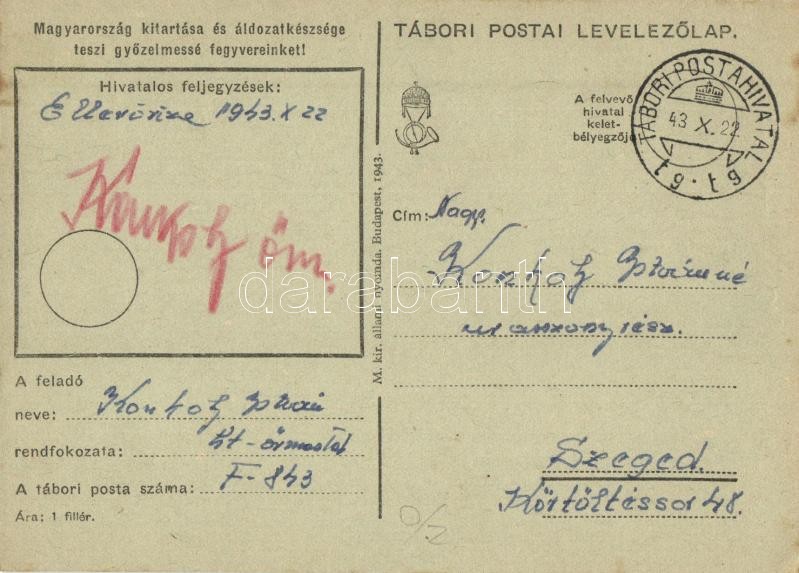 Magyarország kitartása és áldozatkészsége
teszi győzelmessé fegyvereinket!
Hivatalos feljegyzések:
Ellenőrizve 1943. X 22
Konkoly őm.
A feladó
neve: Konkoly István
rendfokozata: szt-őrmester
A tábori posta száma: F-843
Ára: 1 fillér.
M. kir. állami nyomda. Budapest, 1943.
TÁBORI POSTAI LEVELEZŐLAP.
A felvevő
hivatal
kelet-
bélyegzője
TÁBORI POSTAHIVATAL
43 X. 22
Cím: Nagys.
Konkoly Istvánné
úrasszony rész.
Szeged.
Körtöltéssor 48.
darabanth